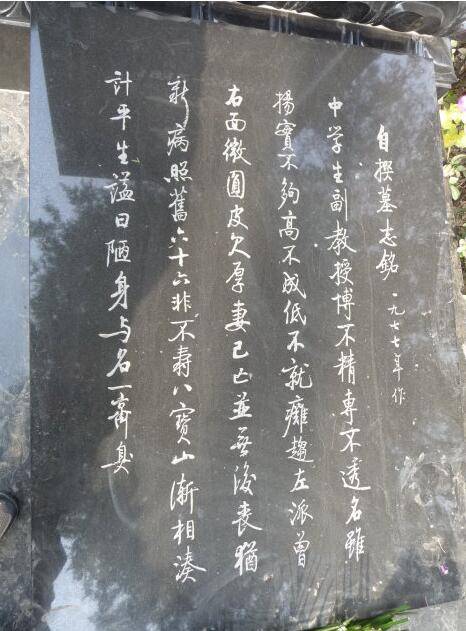 自撰墓志銘 一九七七年作
中学生副教授博不精專不透名雖
揚實不夠高不成低不就癱趨左派曾
右面微圓皮欠厚妻已亡並無後喪猶
新病照舊六十六非不壽八寶山漸相湊
計平生謚曰陋身与名一齊臭